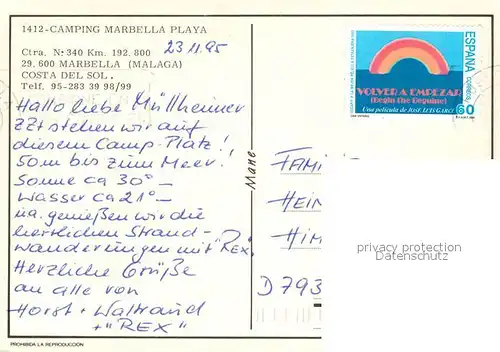 1412-CAMPING MARBELLA PLAYA
Ctra. N-340 Km. 192.800
23.11.95
29.600 MARBELLA (MALAGA)
COSTA DEL SOL.
Telf. 95-283 39 98/99
Hallo liebe Müllheimer
ZZt stehen wir auf
diesem Camp-Platz!
50m bis zum Meer!
Sonne ca 30° –
Wasser ca 21° –
na. genießen wir die
herrlichen Strand-
wanderungen mit "REX".
Herzliche Grüße
an alle von
Horst + Waltraud
+ "REX"
PROHIBIDA LA REPRODUCCIÓN
Mane
ESPAÑA
CORREOS
60
VOLVER A EMPEZAR
(Begin the Beguine)
Una película de JOSE LUIS GARCI
FAMI
HEIN
HIM
D 793
privacy protection
Datenschutz